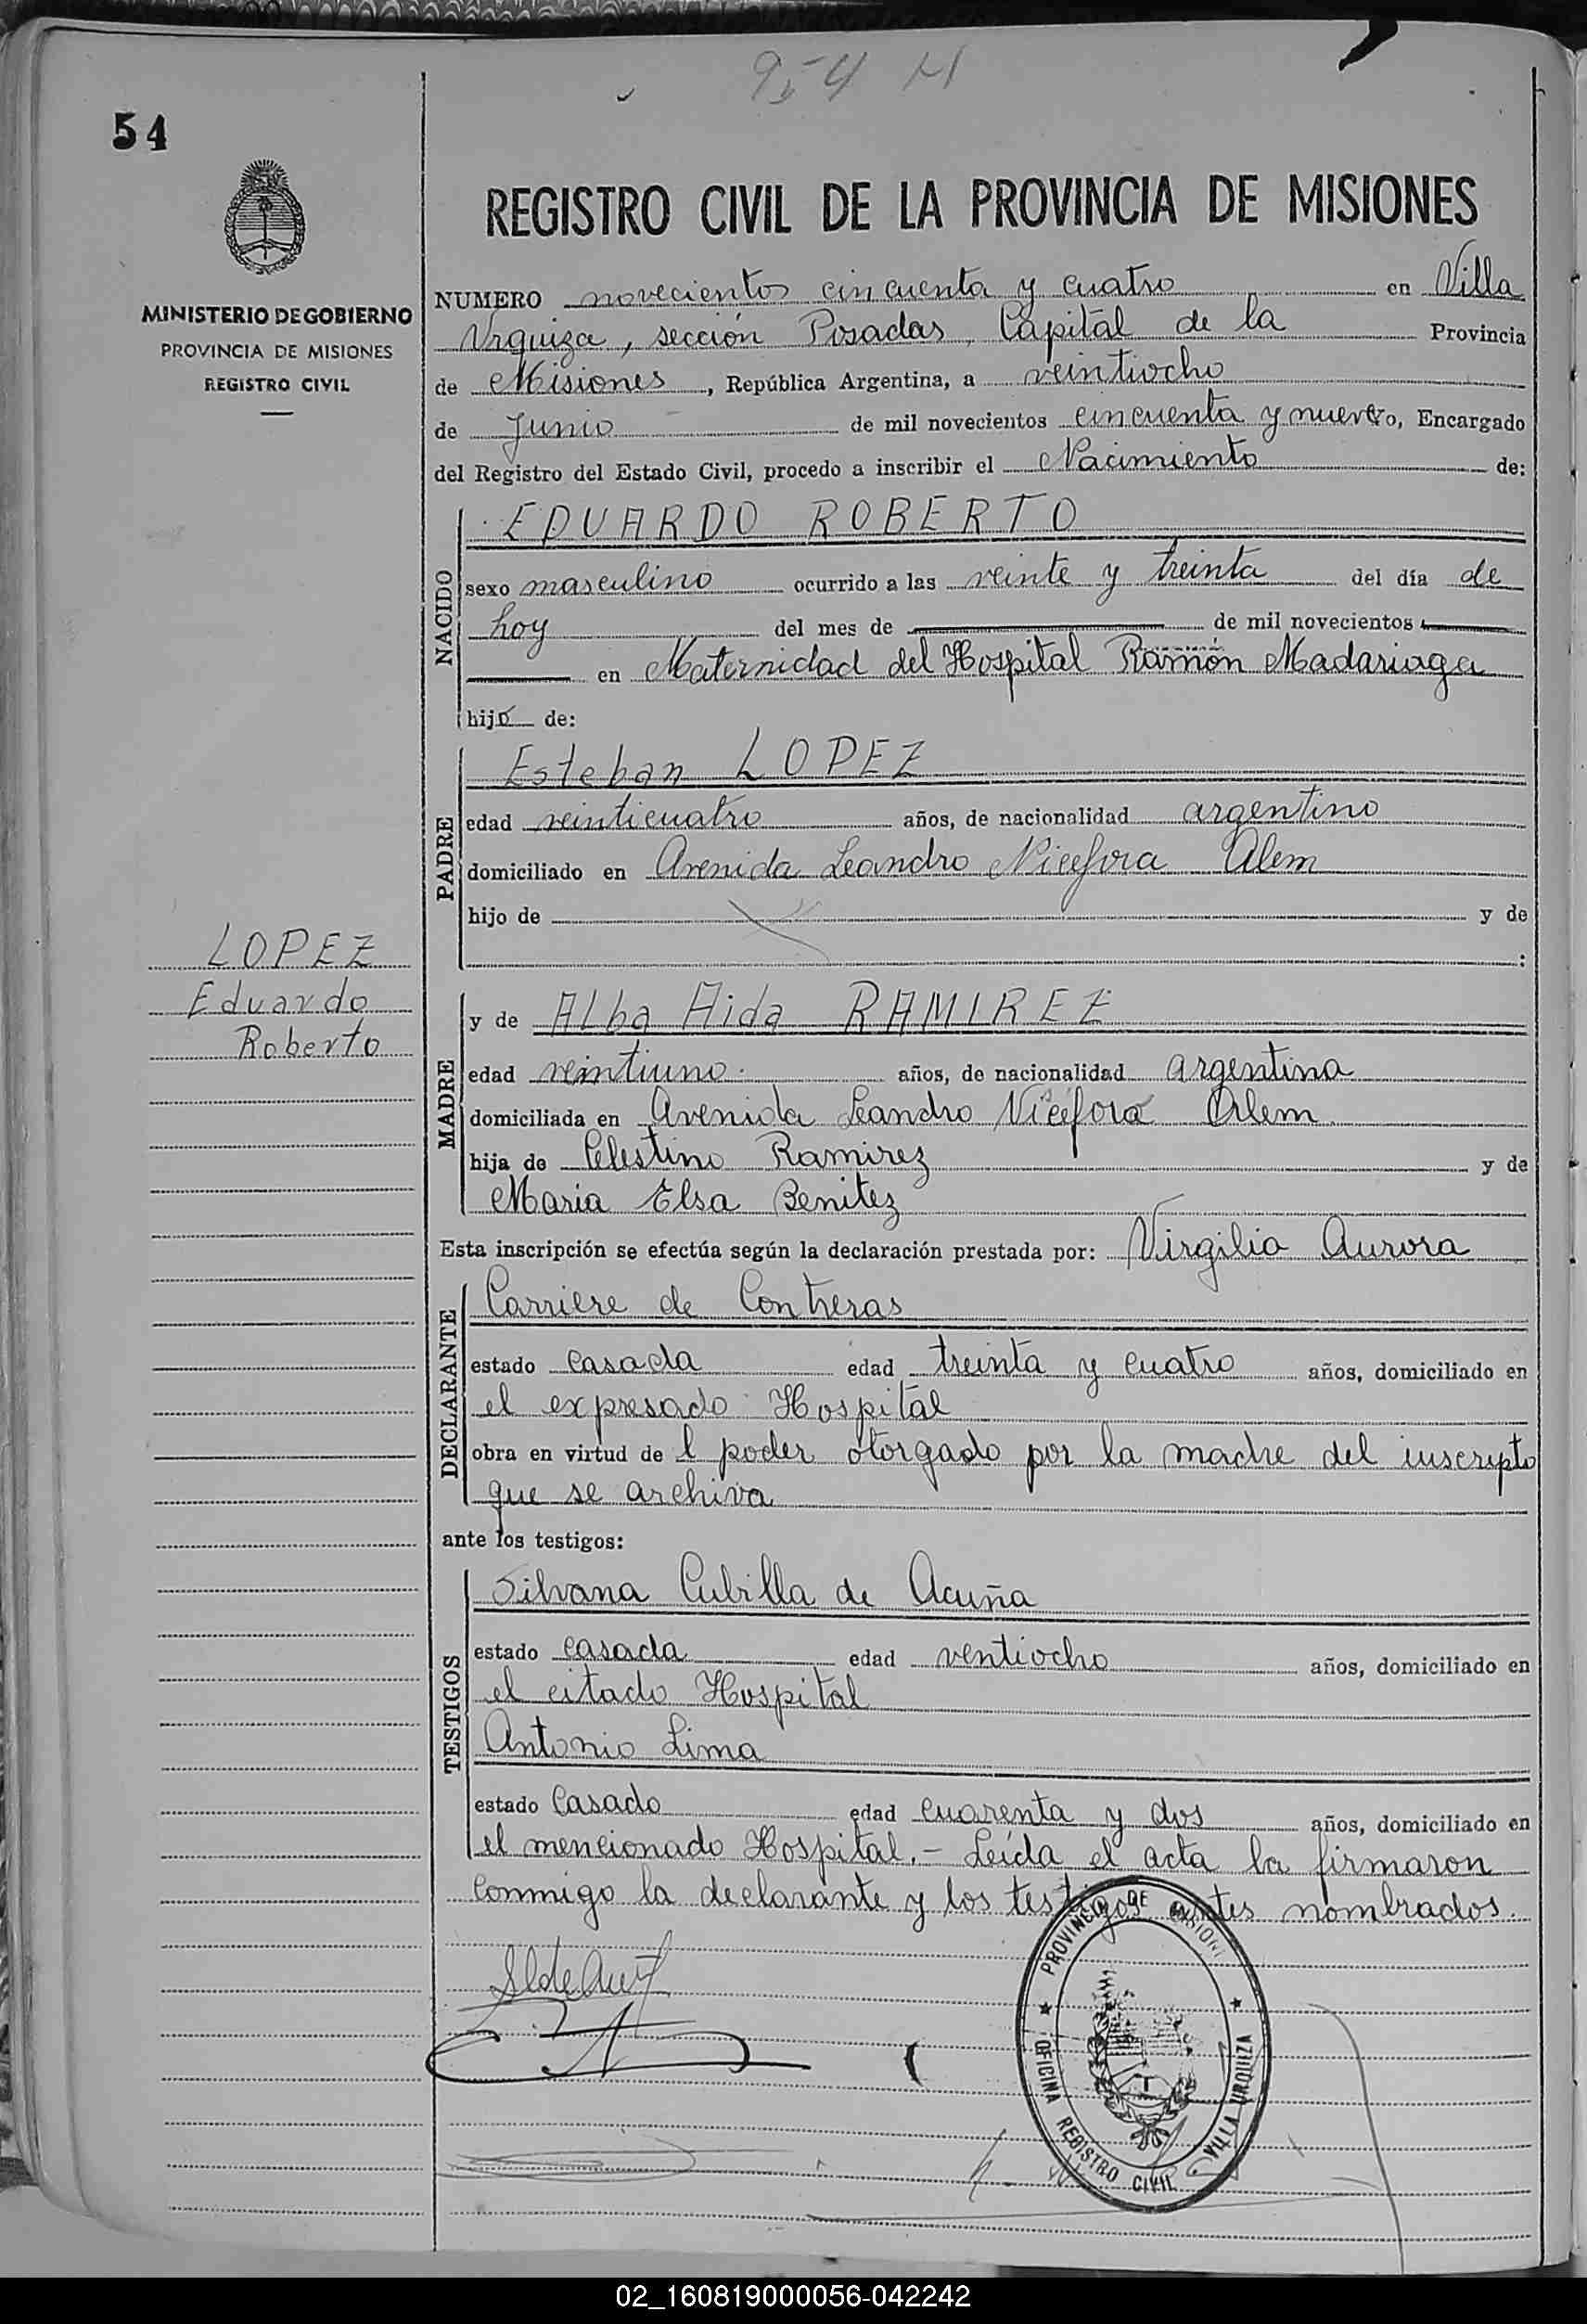 954 N
54
REGISTRO CIVIL DE LA PROVINCIA DE MISIONES
MINISTERIO DE GOBIERNO
PROVINCIA DE MISIONES
REGISTRO CIVIL
NUMERO novecientos cincuenta y cuatro en Villa
Urquiza, sección Posadas, Capital de la Provincia
de Misiones, República Argentina, a veintiocho
de Junio de mil novecientos cincuenta y nueve yo, Encargado
del Registro del Estado Civil, procedo a inscribir el Nacimiento de:
NACIDO
EDUARDO ROBERTO
sexo masculino ocurrido a las veinte y treinta del día de
hoy del mes de de mil novecientos
en Maternidad del Hospital Ramón Madariaga
hijo de:
PADRE
Esteban LOPEZ
edad veinticuatro años, de nacionalidad argentino
domiciliado en Avenida Leandro Nicefora Alem
hijo de y de
:
LOPEZ
Eduardo
Roberto
MADRE
y de Alba Aida RAMIREZ
edad veintiuno. años, de nacionalidad argentina
domiciliada en Avenida Leandro Nicefora Alem
hija de Celestino Ramirez y de
Maria Elsa Benitez
Esta inscripción se efectúa según la declaración prestada por: Virgilia Aurora
DECLARANTE
Carriere de Contreras
estado casada edad treinta y cuatro años, domiciliado en
el expresado Hospital
obra en virtud de l poder otorgado por la madre del inscripto
que se archiva
ante los testigos:
TESTIGOS
Silvana Cubilla de Acuña
estado casada edad ventiocho años, domiciliado en
el citado Hospital
Antonio Lima
estado Casado edad cuarenta y dos años, domiciliado en
el mencionado Hospital.- Leída el acta la firmaron
conmigo la declarante y los testigos antes nombrados.
PROVINCIA DE MISIONES
OFICINA REGISTRO CIVIL VILLA URQUIZA
02_160819000056-042242